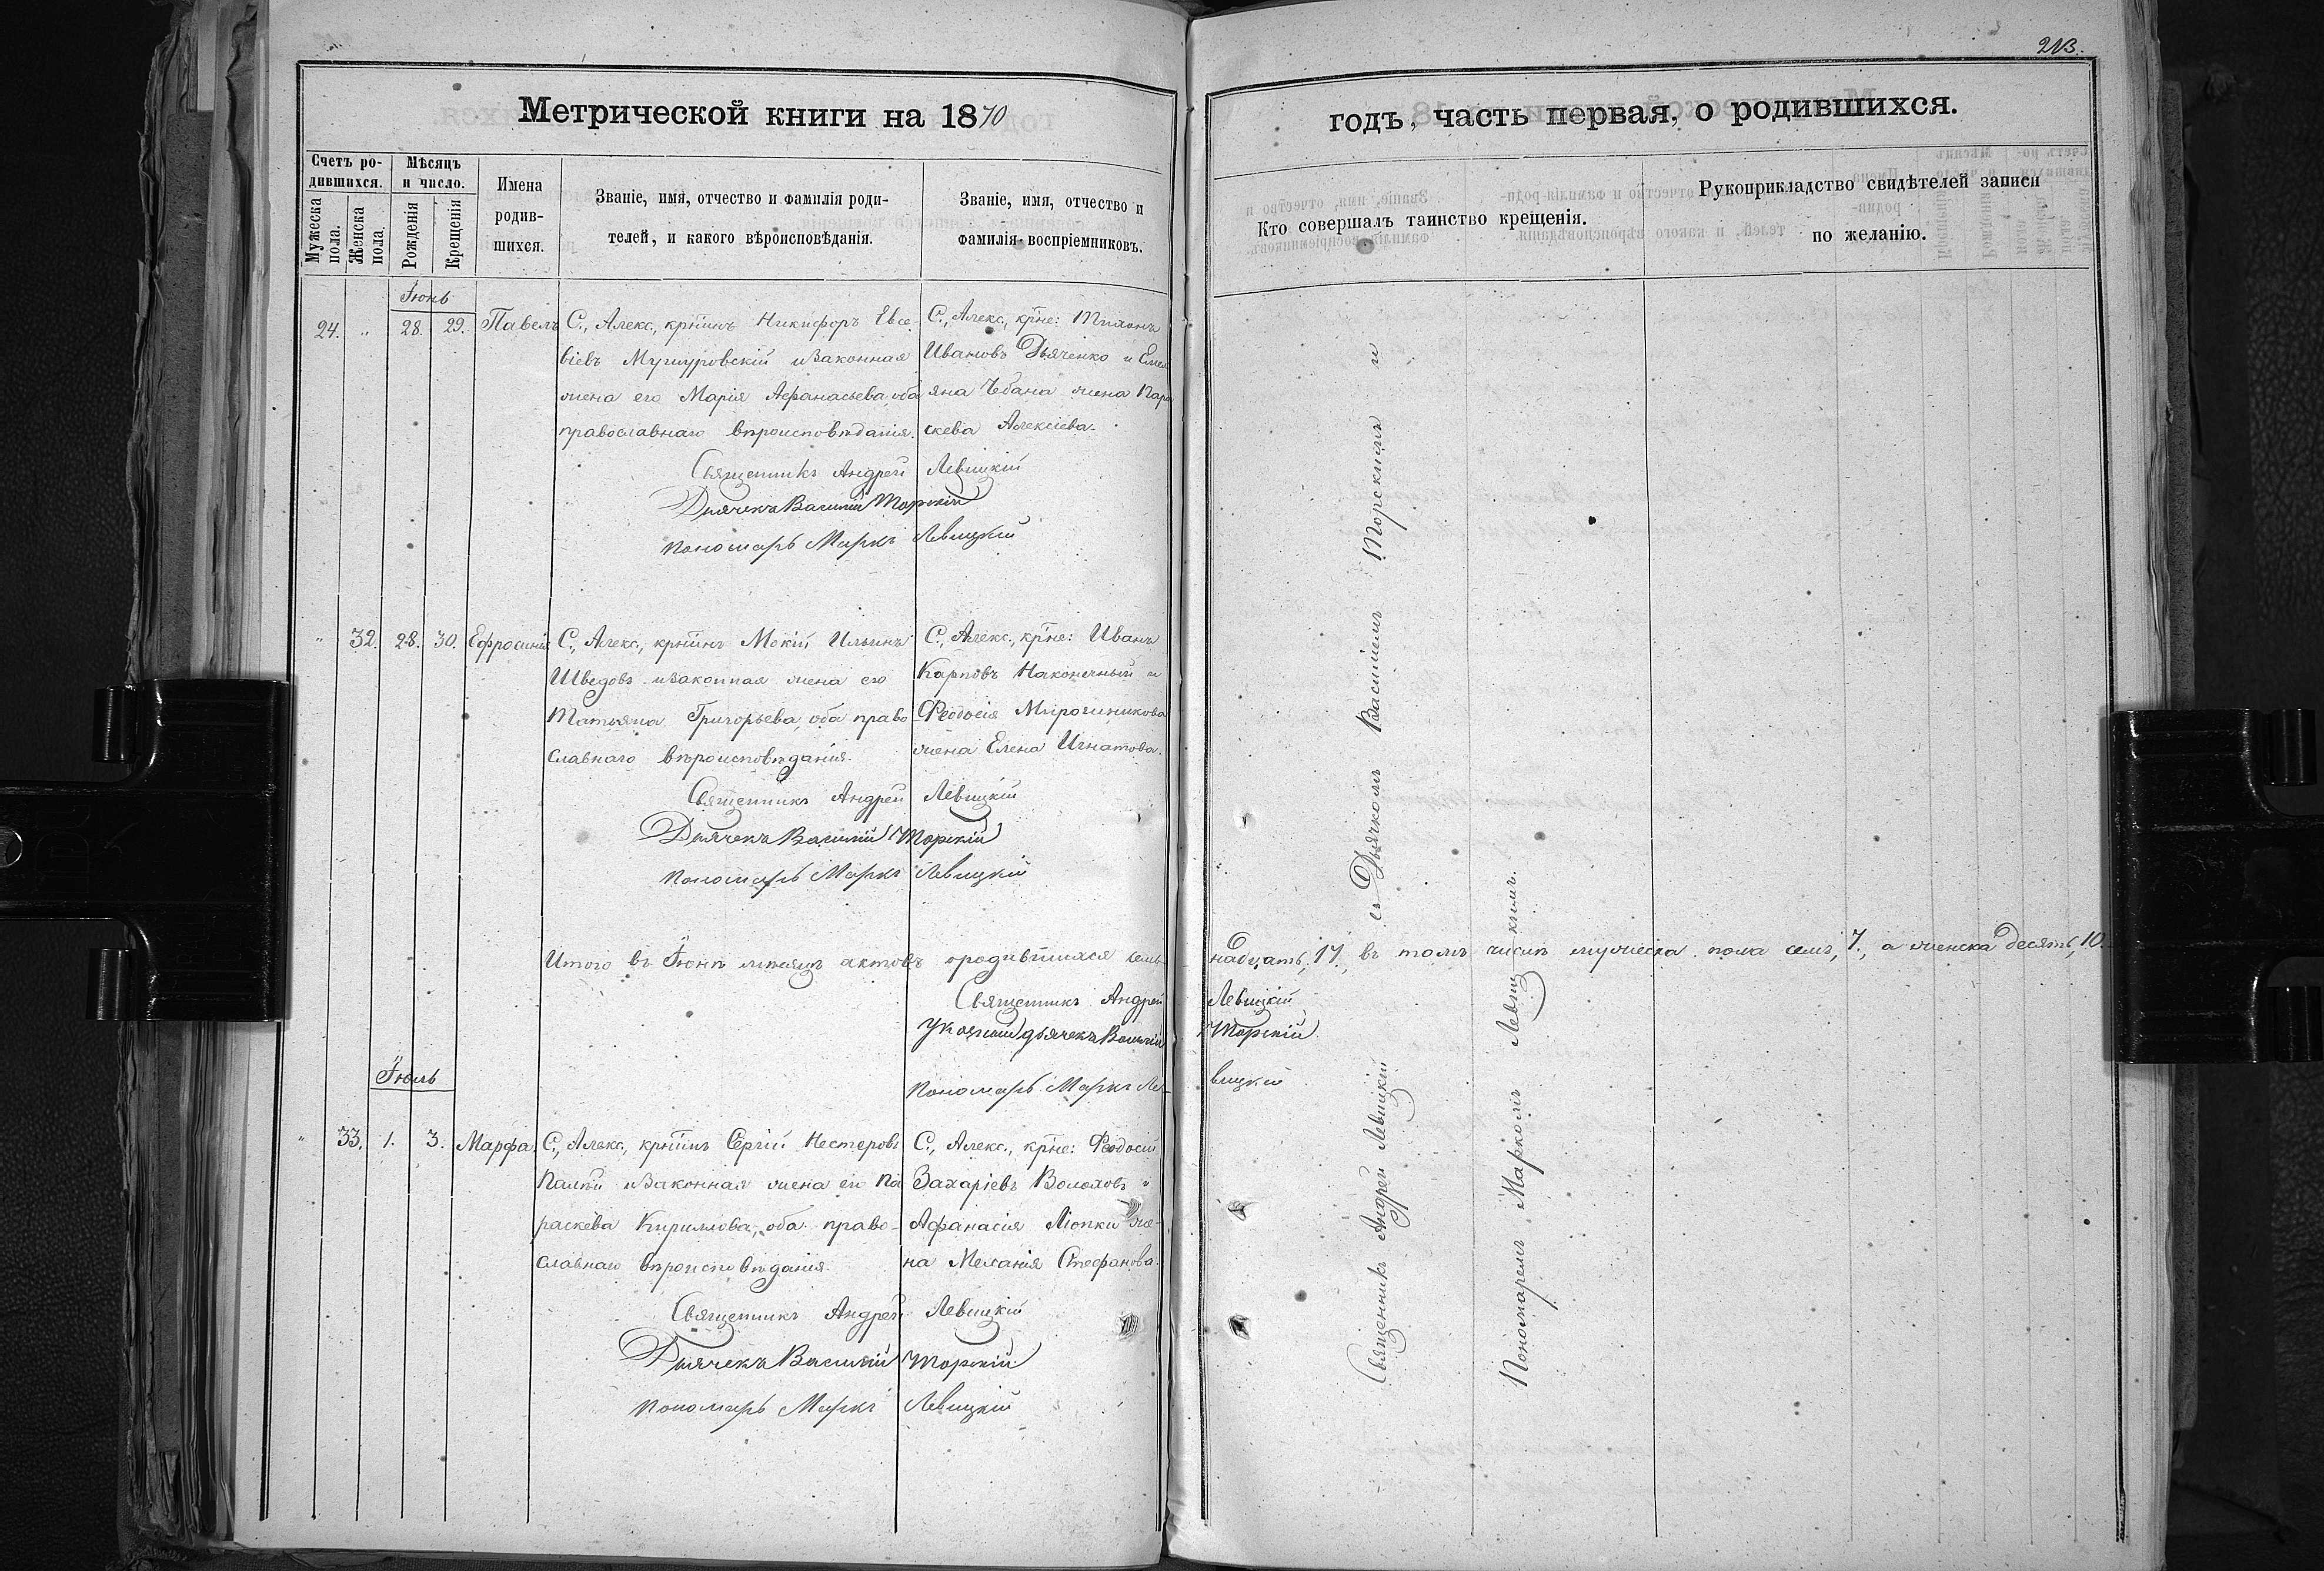 213.
Метрической книги на 1870
годъ, часть первая, о родившихся.
Счетъ ро-
дившихся.
Мужеска пола.
Женска пола.
Мѣсяцъ
и число.
Рожденія
Крещенія
Имена
родив-
шихся.
Званіе, имя, отчество и фамилія роди-
телей, и какого вѣроисповѣданія.
Званіе, имя, отчество и
фамилія воспріемниковъ.
Кто совершалъ таинство крещенія.
Рукоприкладство свидѣтелей записи
по желанію.
Іюнь
24. „ 28. 29. Павелъ
С., Алекс., крѣнинъ Никифоръ Евсе-
віевъ изаконная
жена его Марія Афанасьева, оба
православнаго вѣроисповѣданія.
С., Алекс., крѣне: Тихонъ
Ивановъ Дьяченко и Емель
яна Чебана жена Пара
скева Алексіева.
Священникъ Андрей Левицкій
Дьячекъ Василій Торскій
Пономарь Маркъ Левицкій
„ 32. 28. 30. Ефросинія
С., Алекс., крѣнинъ Мокій Ильинъ
Шведовъ изаконная жена его
Татьяна Григорьева, оба право
славнаго вѣроисповѣданія.
С., Алекс., крѣне: Иванъ
Карповъ Наконечный и
Феодосія Мирошникова
жена Елена Игнатова.
Священникъ Андрей Левицкій
Дьячекъ Василій Торскій
Пономарь Маркъ Левицкій
Итого въ Іюнѣ мѣсяцѣ актовъ ородившихся семь-
надцать, 17., въ томъ числѣ мужеска пола семь, 7., а женска десять, 10.
Священникъ Андрей Левицкій
Указный дьячекъ Василій Торскій
Пономарь Маркъ Ле-
вицкій
Іюль
„ 33. 1. 3. Марфа.
С., Алекс., крѣнинъ Сергій Нестеровъ
изаконная жена его Па
раскева Кириллова, оба право-
славнаго вѣроисповѣданія.
С., Алекс., крѣне: Феодосій
Захаріевъ Волоховъ и
Афанасія Люпки же-
на Меланія Стефанова.
Священникъ Андрей Левицкій
Дьячекъ Василій Торскій
Пономарь Маркъ Левицкій
Священникъ Андрей Левицкій съ Дьячкомъ Василіемъ Торскимъ и
Пономаремъ Маркомъ Левицкимъ.